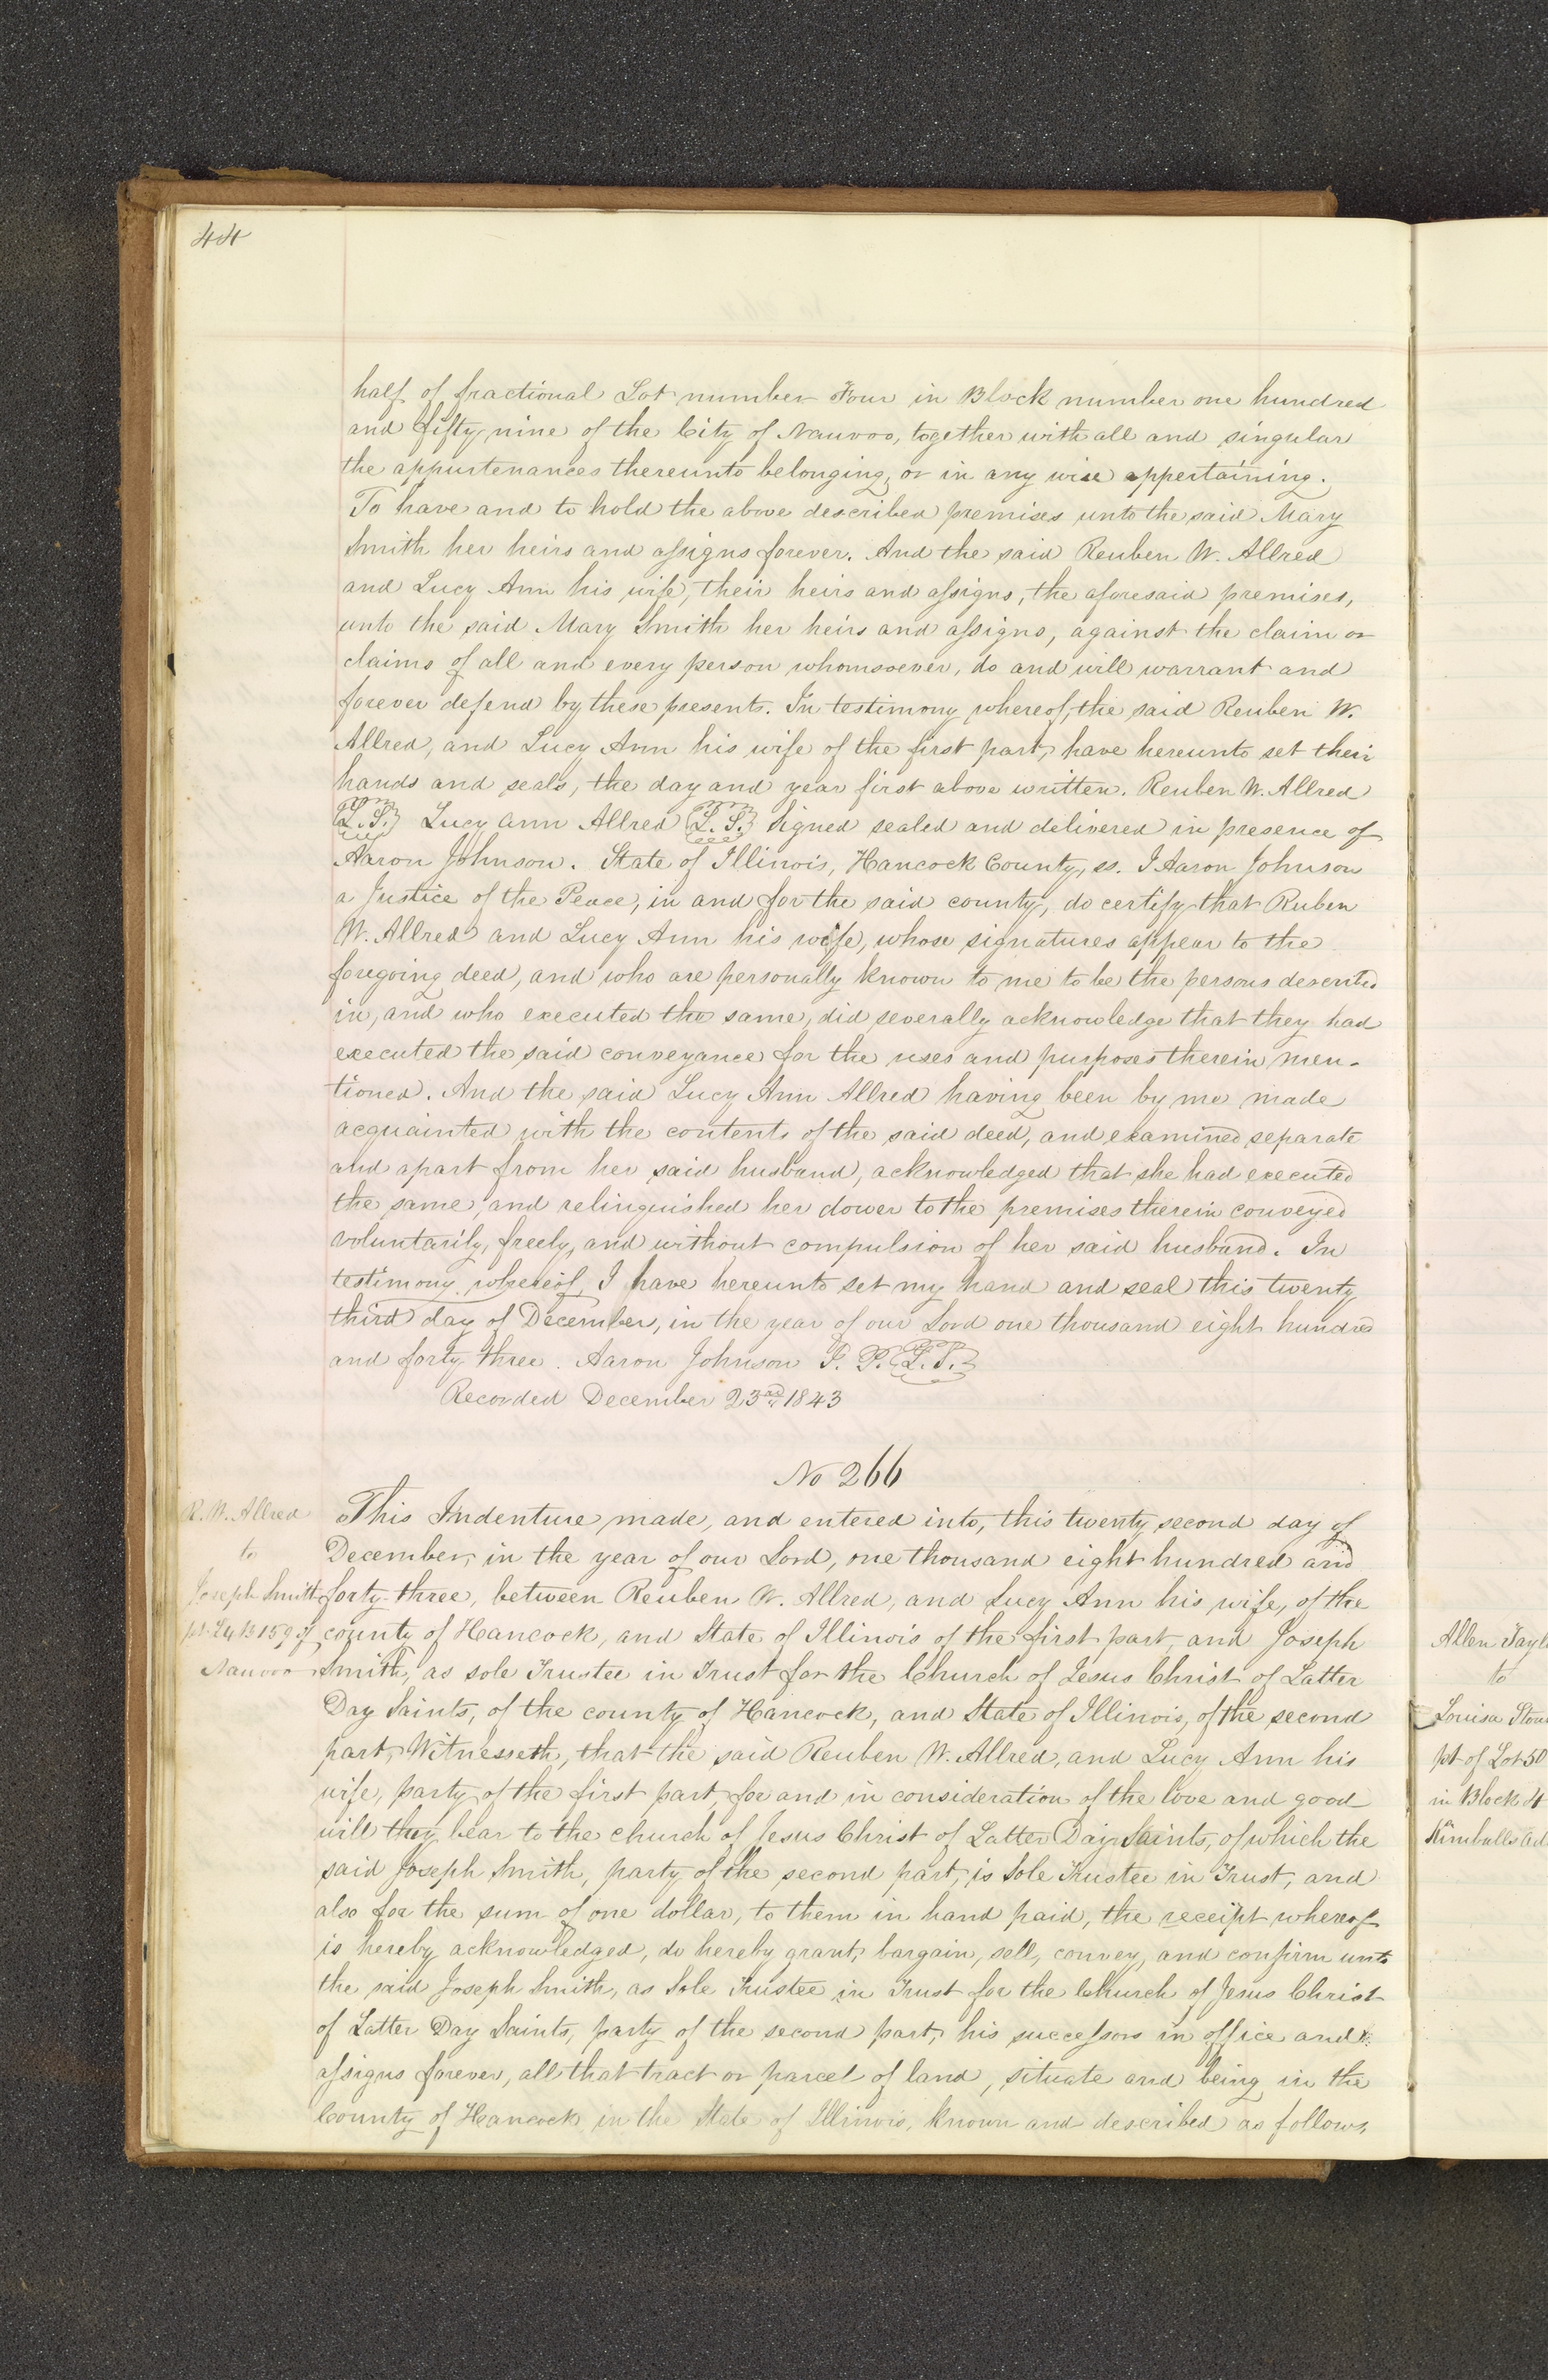 44
half of fractional Lot number Four in Block number one hundred
and fifty nine of the City of Nauvoo, together with all and singular
the appurtenances thereunto belonging, or in any wise appertaining.
To have and to hold the above described premises unto the said Mary
Smith her heirs and assigns forever. And the said Reuben W. Allred
and Lucy Ann his wife, their heirs and assigns, the aforesaid premises,
unto the said Mary Smith her heirs and assigns, against the claim or
claims of all and every person whomsoever, do and will warrant and
forever defend by these presents. In testimony whereof, the said Reuben W.
Allred, and Lucy Ann his wife of the first part, have hereunto set their
hands and seals, the day and year first above written. Reuben W. Allred
L.S. Lucy Ann Allred L.S. Signed sealed and delivered in presence of
Aaron Johnson. State of Illinois, Hancock County, ss. I Aaron Johnson
a Justice of the Peace, in and for the said county, do certify that Ruben
W. Allred and Lucy Ann his wife, whose signatures appear to the
foregoing deed, and who are personally known to me to be the persons described
in, and who executed the same, did severally acknowledge that they had
executed the said conveyance for the uses and purposes therein men-
tioned. And the said Lucy Ann Allred having been by me made
acquainted with the contents of the said deed, and examined separate
and apart from her said husband, acknowledged that she had executed
the same, and relinquished her dower to the premises therein conveyed
voluntarily, freely, and without compulsion of her said husband. In
testimony whereof, I have hereunto set my hand and seal this twenty
third day of December, in the year of our Lord one thousand eight hundred
and forty three. Aaron Johnson J. P. L.S.
Recorded December 23rd 1843
No 266
R. W. Allred
to
Joseph Smith
pt. L4 B159 of
Nauvoo
This Indenture made, and entered into, this twenty second day of
December, in the year of our Lord, one thousand eight hundred and
forty-three, between Reuben W. Allred, and Lucy Ann his wife, of the
county of Hancock, and State of Illinois of the first part, and Joseph
Smith, as sole Trustee in Trust for the Church of Jesus Christ of Latter
Day Saints, of the county of Hancock, and State of Illinois, of the second
part, Witnesseth, that the said Reuben W. Allred, and Lucy Ann his
wife, party of the first part, for and in consideration of the love and good
will they bear to the church of Jesus Christ of Latter Day Saints, of which the
said Joseph Smith, party of the second part, is Sole Trustee in Trust, and
also for the sum of one dollar, to them in hand paid, the receipt whereof
is hereby acknowledged, do hereby grant, bargain, sell, convey, and confirm unto
the said Joseph Smith, as Sole Trustee in Trust for the Church of Jesus Christ
of Latter Day Saints, party of the second part, his successors in office and
assigns forever, all that tract or parcel of land, situate and being in the
County of Hancock in the State of Illinois, known and described as follows,
Allen Tayl
to
Louisa Stou
pt of Lot 50
in Block 4
Kimballs ad